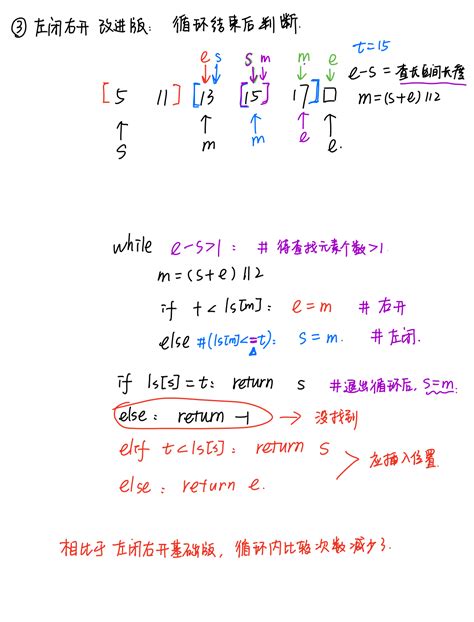 ③ 左闭右开 改进版: 循环结束后判断.
e s s m m e t=15
[ 5 11] [13 [15] 17] □ e-s = 查找区间长度
m=(s+e)//2
↑ ↑ ↑ ↑ ↑
s m m e e.
while e-s>1: # 待查找元素个数>1
m=(s+e)//2
if t<ls[m]: e=m # 右开
else #(ls[m]<=t): s=m. # 左闭.
if ls[s]=t: return s #退出循环后, s=m.
else: return -1 → 没找到
elif t<ls[s]: return s
应插入位置.
else: return e.
相比于 左闭右开基础版, 循环内比较次数减少了.